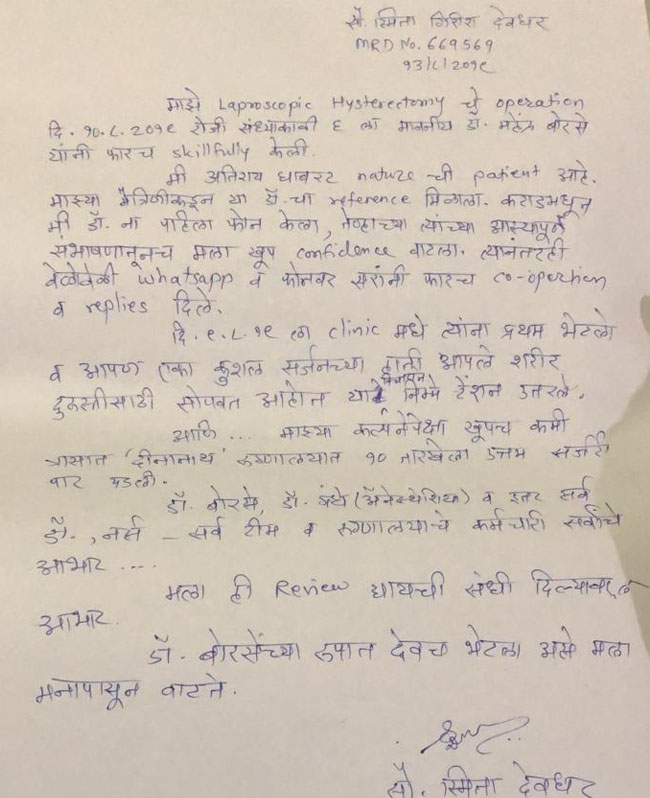 सौ. स्मिता गिरीश देवधर
MRD No. 669569
१३/८/२०१९
माझे Laproscopic Hysterectomy चे operation
दि. १०.८.२०१९ रोजी संध्याकाळी ६ ला माननीय डॉ. महेंद्र बोरसे
यांनी फारच skillfully केली.
मी अतिशय घाबरट nature ची patient आहे.
माझ्या मैत्रिणीकडून या डॉ. चा reference मिळाला. कराडमधून
मी डॉ. ना पहिला फोन केला, तेव्हाच्या त्यांच्या आस्थापूर्ण
संभाषणातूनच मला खूप confidence वाटला. त्यानंतरही
वेळोवेळी Whatsapp व फोनवर सरांनी फारच co-opertion
व replies दिले.
दि. ९.८.१९ ला clinic मधे त्यांना प्रथम भेटलो
व आपण एका कुशल सर्जनच्या हाती आपले शरीर
दुरुस्तीसाठी सोपवत आहोत निम्मे टेंशन उतरले.
आणि ... माझ्या कल्पनेपेक्षा खूपच कमी
त्रासात 'दीनानाथ' रुग्णालयात १० तारखेला उत्तम सर्जरी
पार पडली.
डॉ. बोरसे, डॉ. (ॲनेस्थेशिया) व इतर सर्व
डॉ., नर्स – सर्व टीम व रुग्णालयाचे कर्मचारी सर्वांचे
आभार ....
मला ही Review द्यायची संधी दिल्याबद्दल
आभार.
डॉ. बोरसेंच्या रुपात देवच भेटला असे मला
मनापासून वाटते.
सौ. स्मिता देवधर